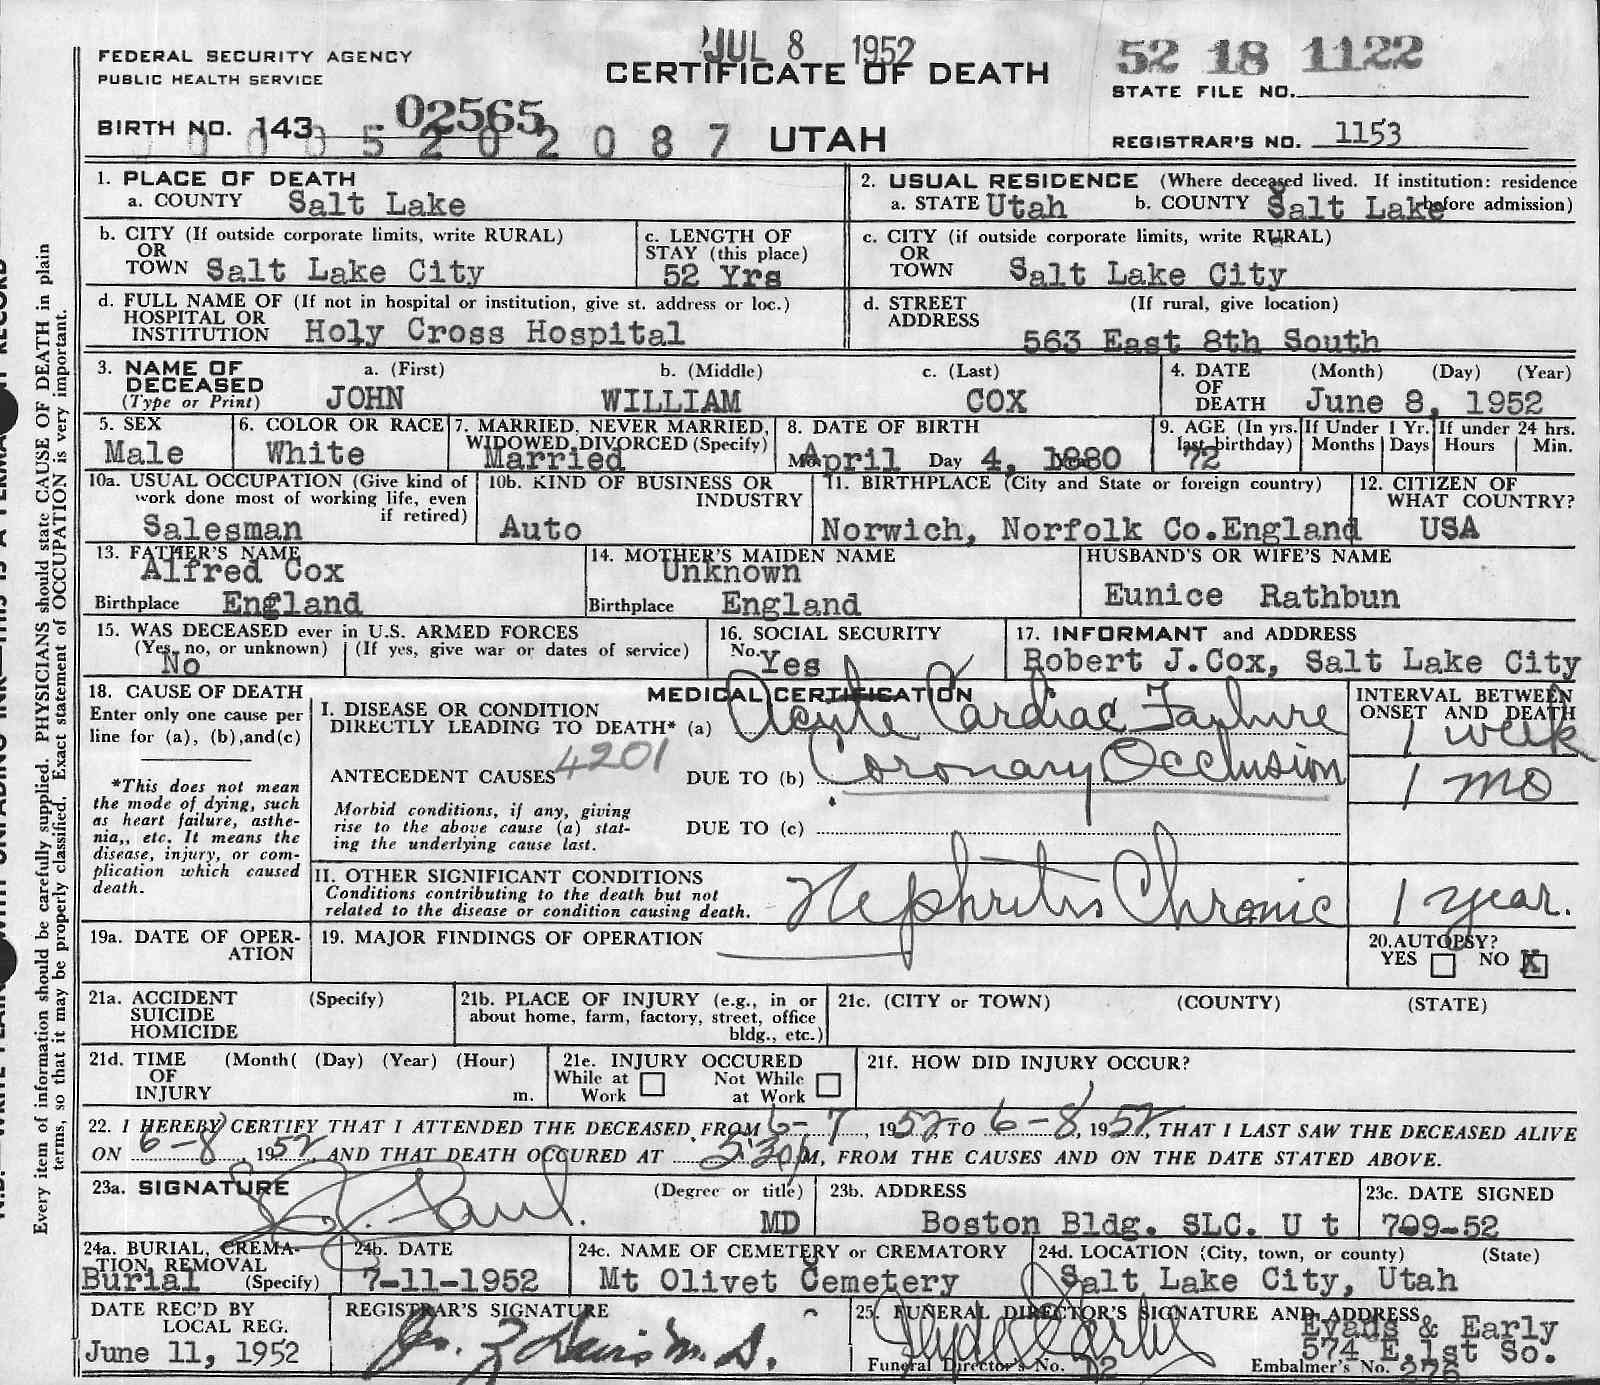 JUL 8 1952
FEDERAL SECURITY AGENCY
PUBLIC HEALTH SERVICE
CERTIFICATE OF DEATH
52 18 1122
STATE FILE NO.
BIRTH NO. 143
02565
0005202087
UTAH
REGISTRAR'S NO. 1153
1. PLACE OF DEATH
a. COUNTY Salt Lake
2. USUAL RESIDENCE (Where deceased lived. If institution: residence before admission)
a. STATE Utah b. COUNTY Salt Lake
b. CITY (If outside corporate limits, write RURAL)
OR
TOWN Salt Lake City
c. LENGTH OF
STAY (this place)
52 Yrs
c. CITY (if outside corporate limits, write RURAL)
OR
TOWN Salt Lake City
d. FULL NAME OF (If not in hospital or institution, give st. address or loc.)
HOSPITAL OR
INSTITUTION Holy Cross Hospital
d. STREET (If rural, give location)
ADDRESS
563 East 8th South
3. NAME OF
DECEASED
(Type or Print)
a. (First) b. (Middle) c. (Last)
JOHN WILLIAM COX
4. DATE (Month) (Day) (Year)
OF
DEATH June 8, 1952
5. SEX
Male
6. COLOR OR RACE
White
7. MARRIED, NEVER MARRIED,
WIDOWED, DIVORCED (Specify)
Married
8. DATE OF BIRTH
April Day 4, 1880
9. AGE (In yrs. last birthday)
72
If Under 1 Yr.
Months Days
If under 24 hrs.
Hours Min.
10a. USUAL OCCUPATION (Give kind of
work done most of working life, even
if retired)
Salesman
10b. KIND OF BUSINESS OR
INDUSTRY
Auto
11. BIRTHPLACE (City and State or foreign country)
Norwich, Norfolk Co.England
12. CITIZEN OF
WHAT COUNTRY?
USA
13. FATHER'S NAME
Alfred Cox
Birthplace England
14. MOTHER'S MAIDEN NAME
Unknown
Birthplace England
HUSBAND'S OR WIFE'S NAME
Eunice Rathbun
15. WAS DECEASED ever in U.S. ARMED FORCES
(Yes, no, or unknown) (If yes, give war or dates of service)
No
16. SOCIAL SECURITY
No. Yes
17. INFORMANT and ADDRESS
Robert J.Cox, Salt Lake City
18. CAUSE OF DEATH
Enter only one cause per
line for (a), (b),and(c)
*This does not mean
the mode of dying, such
as heart failure, asthe-
nia,, etc. It means the
disease, injury, or com-
plication which caused
death.
MEDICAL CERTIFICATION
I. DISEASE OR CONDITION
DIRECTLY LEADING TO DEATH* (a) Acute Cardiac Failure
ANTECEDENT CAUSES 4201 DUE TO (b) Coronary Occlusion
Morbid conditions, if any, giving
rise to the above cause (a) stat-
ing the underlying cause last.
DUE TO (c)
INTERVAL BETWEEN
ONSET AND DEATH
1 week
1 mo
II. OTHER SIGNIFICANT CONDITIONS
Conditions contributing to the death but not
related to the disease or condition causing death.
Nephritis Chronic 1 year.
19a. DATE OF OPER-
ATION
19. MAJOR FINDINGS OF OPERATION
20. AUTOPSY?
YES NO X
21a. ACCIDENT (Specify)
SUICIDE
HOMICIDE
21b. PLACE OF INJURY (e.g., in or
about home, farm, factory, street, office
bldg., etc.)
21c. (CITY or TOWN) (COUNTY) (STATE)
21d. TIME (Month( (Day) (Year) (Hour)
OF
INJURY m.
21e. INJURY OCCURED
While at Work Not While at Work
21f. HOW DID INJURY OCCUR?
22. I HEREBY CERTIFY THAT I ATTENDED THE DECEASED FROM 6-7, 1952, TO 6-8, 1952, THAT I LAST SAW THE DECEASED ALIVE
ON 6-8, 1952, AND THAT DEATH OCCURED AT 5:30 P M, FROM THE CAUSES AND ON THE DATE STATED ABOVE.
23a. SIGNATURE (Degree or title)
Paul. MD
23b. ADDRESS
Boston Bldg. SLC. U t
23c. DATE SIGNED
709-52
24a. BURIAL, CREMA-
TION, REMOVAL
(Specify)
Burial
24b. DATE
7-11-1952
24c. NAME OF CEMETERY or CREMATORY
Mt Olivet Cemetery
24d. LOCATION (City, town, or county) (State)
Salt Lake City, Utah
DATE REC'D BY
LOCAL REG.
June 11, 1952
REGISTRAR'S SIGNATURE
25. FUNERAL DIRECTOR'S SIGNATURE AND ADDRESS
Evans & Early
574 E.1st So.
Funeral Director's No. 12 Embalmer's No. 276
Every item of information should be carefully supplied. PHYSICIANS should state CAUSE OF DEATH in plain
terms, so that it may be properly classified. Exact statement of OCCUPATION is very important.